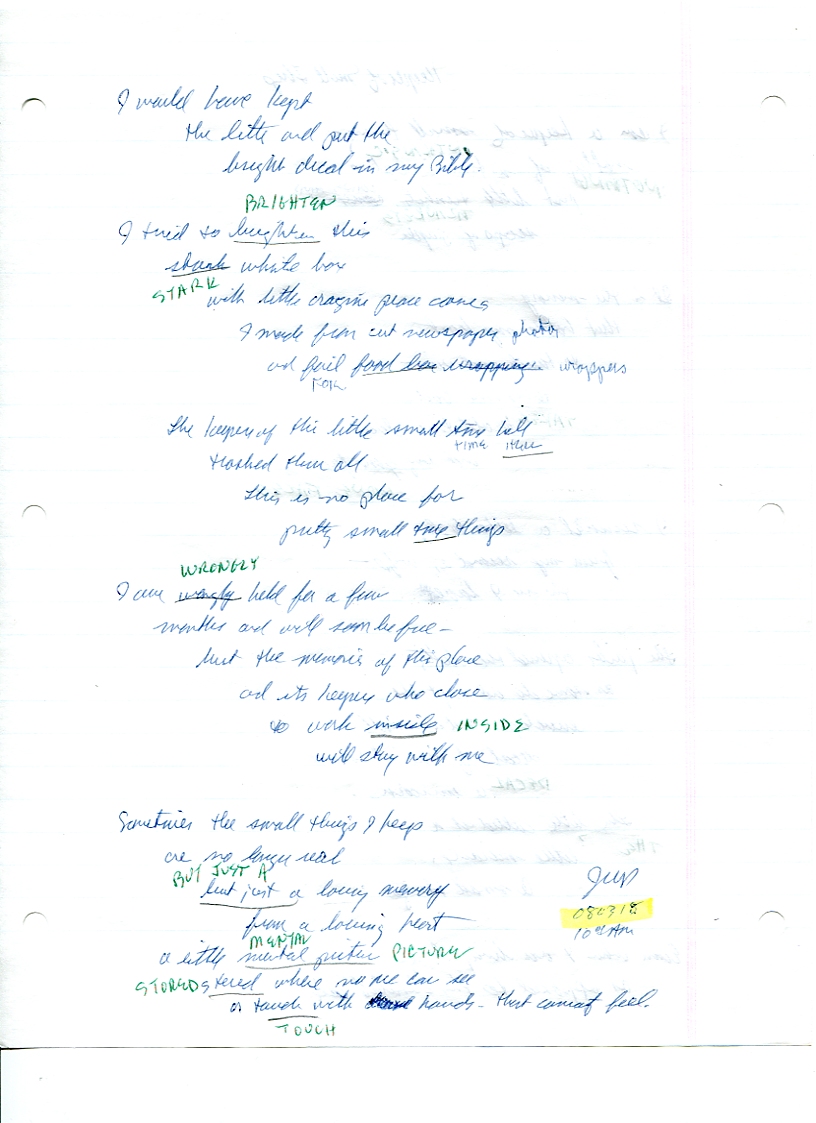 I would have kept
the little and put the
bright decal in my Bible.
BRIGHTEN
I tried to brighten this
stark white box
STARK
with little magazine peace cones
I made from cut newspaper photos
and foil food box wrapping wrappers
FOIL
The keeper of this little small time hell
TIME
trashed them all
this is no place for
pretty small true things
WRONGLY
I am wrongly held for a few
months and will soon be free -
but the memories of this place
and its keepers who chose
to work inside INSIDE
will stay with me
Sometimes the small things I keep
are no longer real
BUT JUST A
but just a loving memory
from a loving heart
MENTAL
a little mental picture PICTURE
STORED stored where no one can see
or touch with hands - that cannot feel.
TOUCH
080318
10 AM